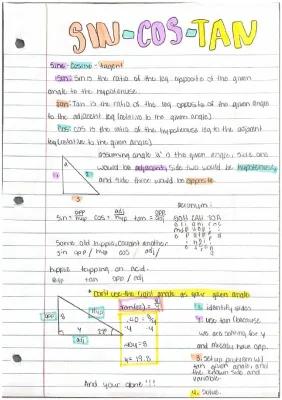 SIN-COS-TAN
Sine-Cosine-tagent
Sin: Sin is the ratio of the leg opposite of the given
angle to the hypotenuse.
Tan: Tan is the ratio of the leg opposite of the given angle
to the adjacent leg (relative to the given angle)
Cos: cos is the ratio of the hypotenuse leg to the adjacent
leg (relative to the given angle)
assuming angle 'a' is the given angle, side one
would be adjacent, side two would be hypotenuse
and side three would be opposite.
1
2
3
acronym:
sin = opp/hyp cos = adj/hyp tan = opp/adj
Some old hippie caught another
sin opp / hyp cos adj /
hippie tripping on acid.
hyp tan opp / adj
* Don't use the right angle as your given angle
opp
8
hyp
y
adj
.40 = 8/y
.y .y
1. identify sides
2. use tan because
we are solving for y
and already have opp.
3. set up problem w/
tan given angle, and
the known side and
variable.
4. solve.
And your done!!!